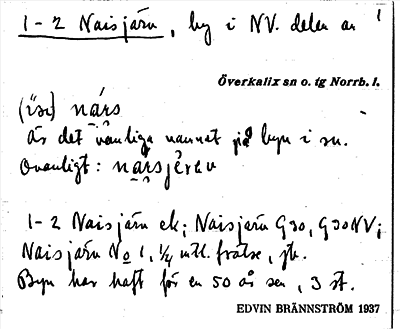 1-2 Naisjärv, by i NV. delen av 1
Överkalix sn o. tg Norrb. l.
(ïse) nárs
är det vanliga namnet på byn i sn.
Ovanligt: nársjèrev
1-2 Naisjärv ek; Naisjärv G30, G30NV;
Naisjärv No 1, 1/4 mtl. frälse, jb.
Byn har haft för en 50 år sen, 3 st.
EDVIN BRÄNNSTRÖM 1937